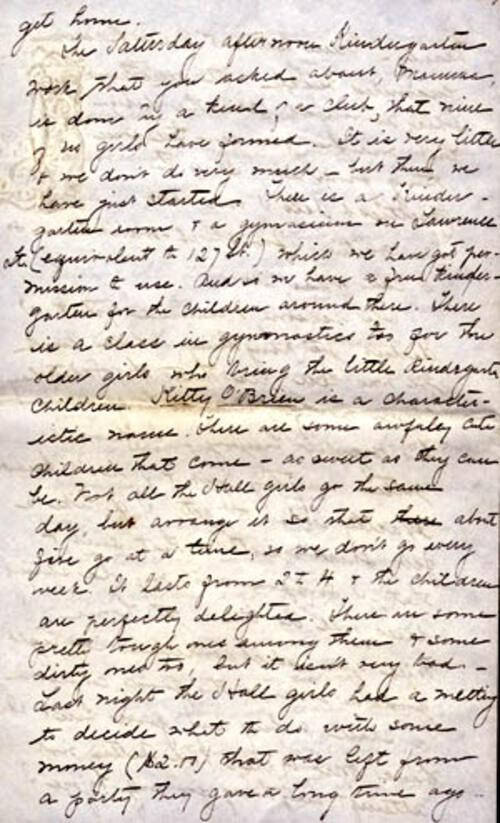 get home.
The Saturday afternoon Kindergarten
work that you asked about, Mamma,
is done in a kind of a club, that nine
of us girls have formed. It is very little
& we don't do very much - but then we
have just started. There is a Kinder-
garten room & a gymnasium on Lawrence
St. (equivalent to 127 St.) which we have got per-
mission to use. And so we have a free kinder-
garten for the children around there. There
is a class in gymnastics too for the
older girls who bring the little Kindergarten
children. Kitty O'Brien is a character-
istic name. There are some awfully cute
children that come - as sweet as they can
be. Not all the Hall girls go the same
day, but arrange it so that there about
five go at a time, so we don't go every
week. It lasts from 2 to 4 & the children
are perfectly delighted. There are some
pretty tough ones among them & some
dirty ones too, but it isn't very bad. -
Last night the Hall girls had a meeting
to decide what to do with some
money ($2.00) that was left from
a party they gave a long time ago -